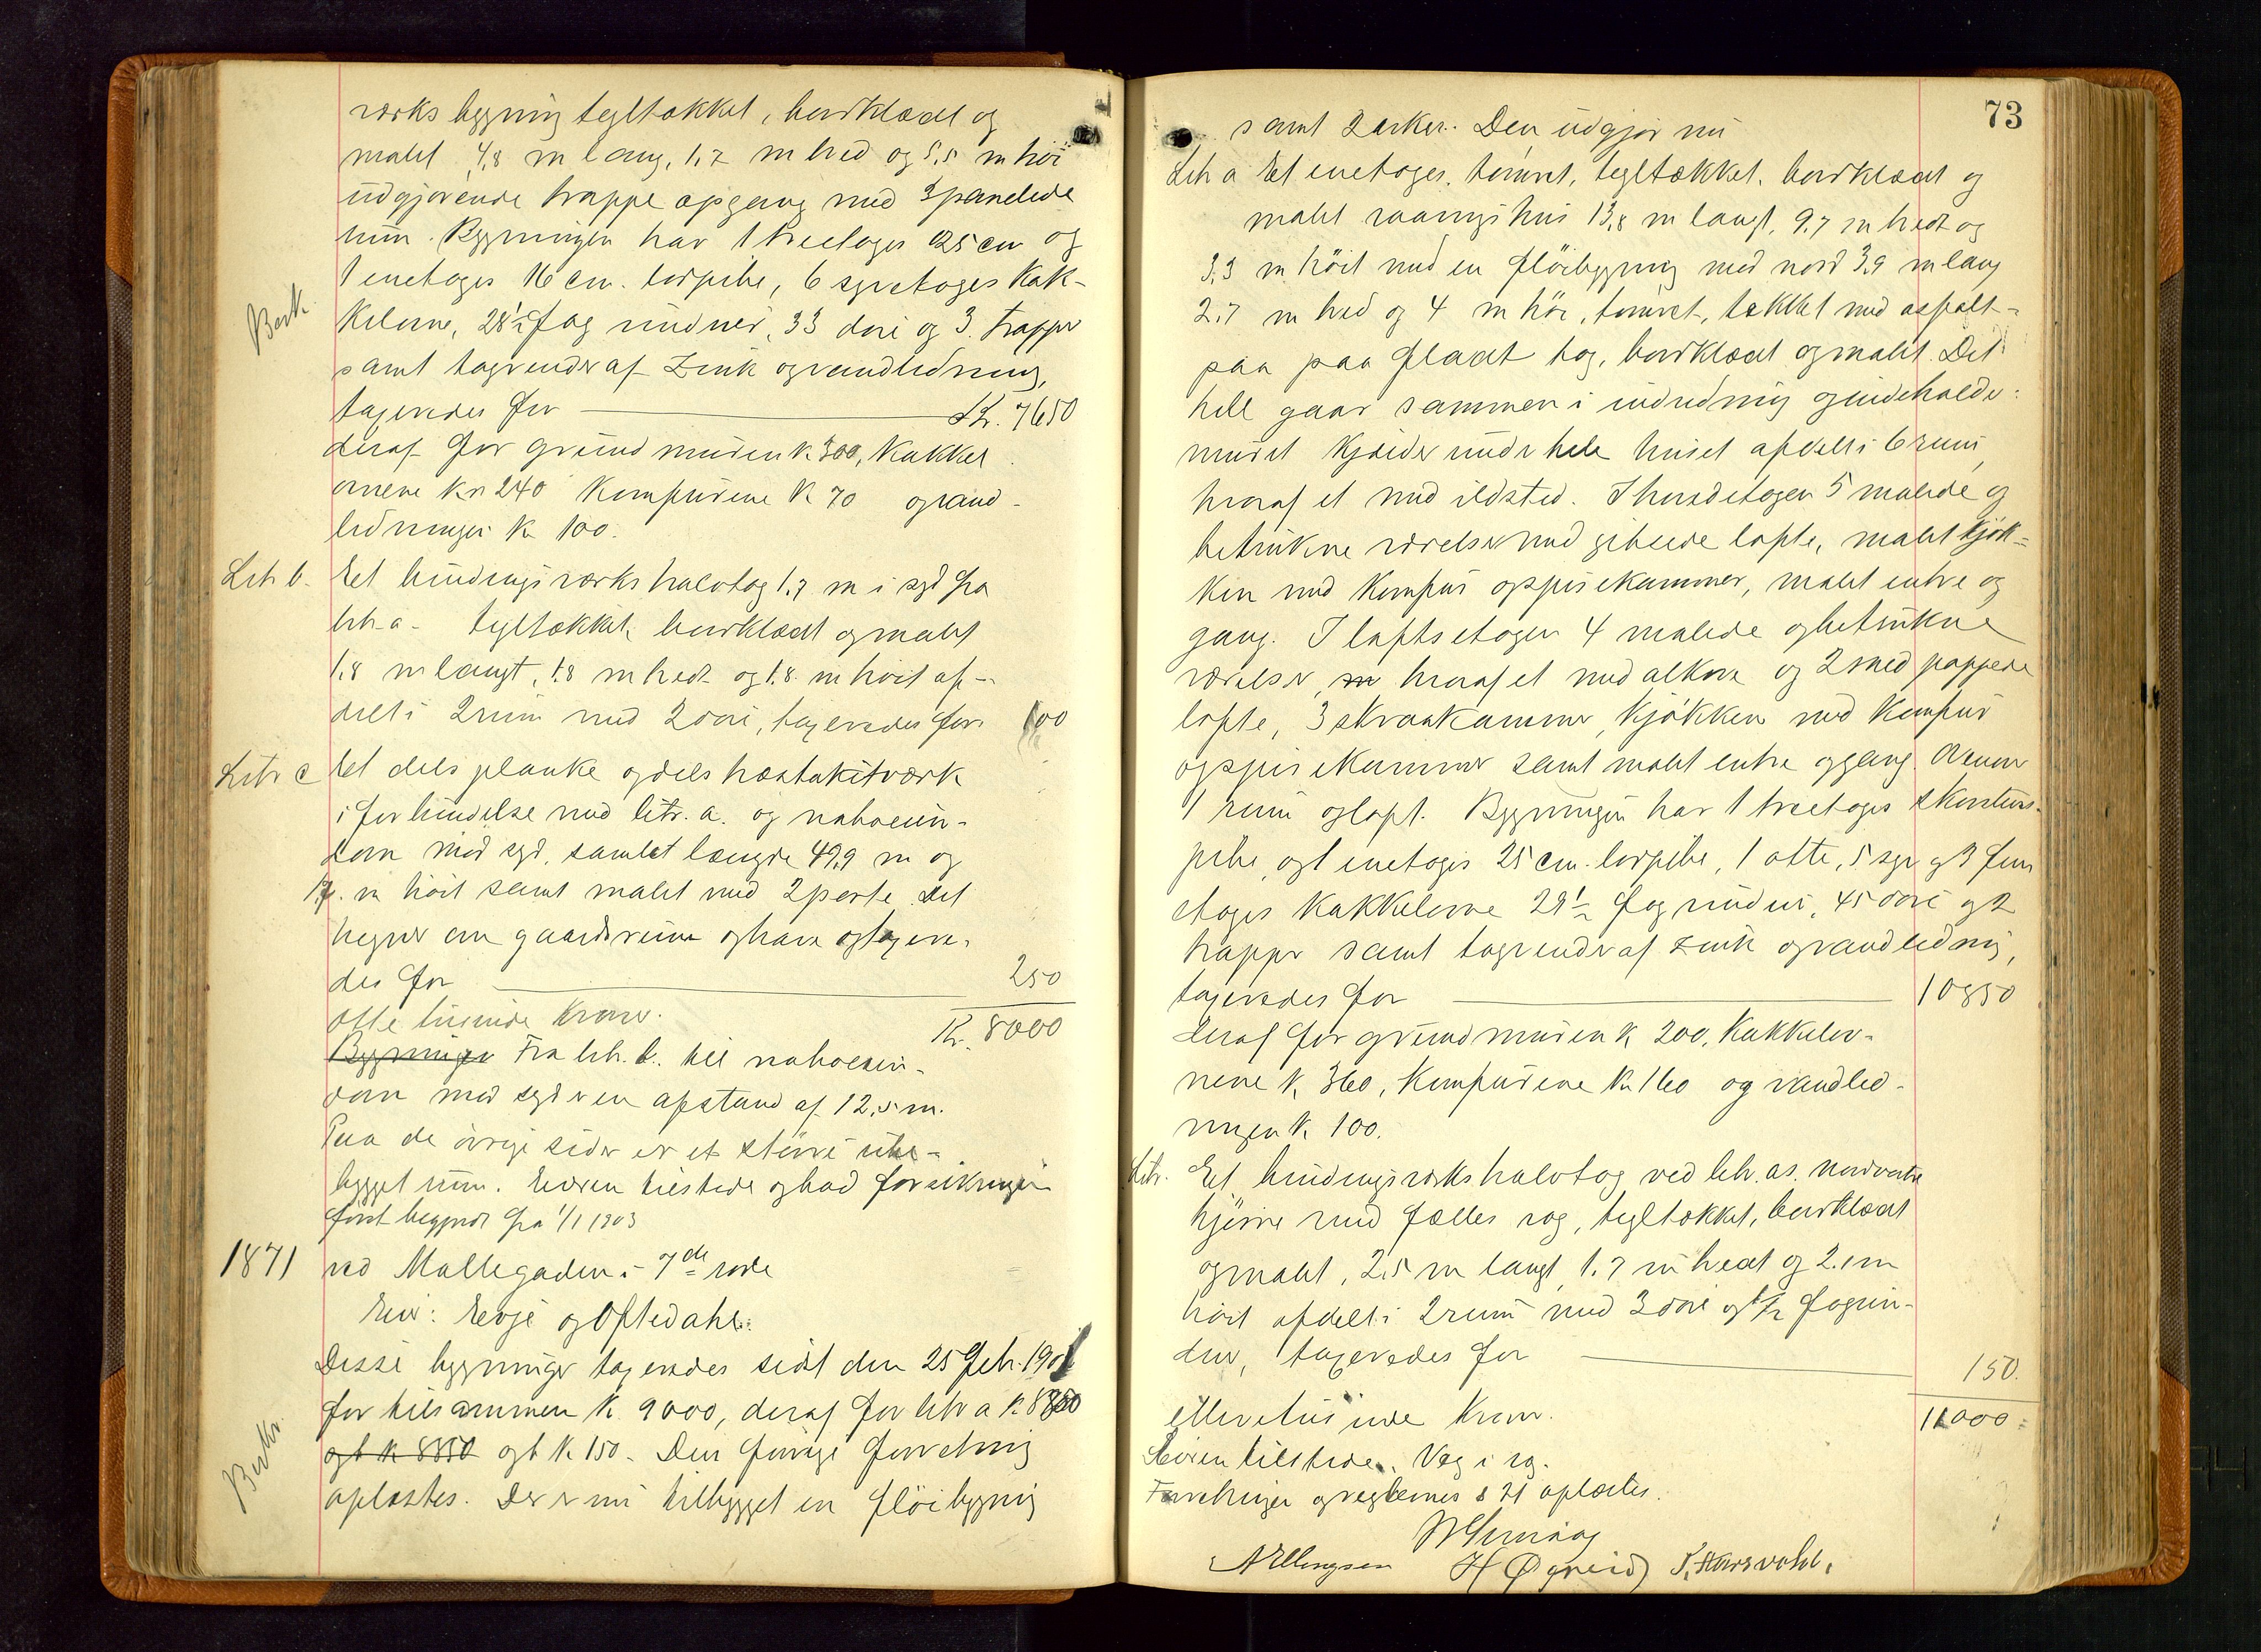 værks bygning tegltækket, bordklædt og
malet 4,8 m lang, 1,7 m bred og 5,5 m høi
udgjørende trappe opgang med 3 panelede
rum. Bygningen har 1 treetages 25 cm og
1 enetages 16 cm. lodpibe, 6 syvetages Kak-
Kelovne, 28½ fag vinduer, 33 döre og 3 trapper
Besk.
samt tagrender af Zink og vandledning,
taxeredes for Kr. 7650
deraf for grundmuren K 300, Kakkel
ovnene Kr 240 Komfurene K 70 og vand-
ledningen K 100.
Litr b. Et bindingsværks halvtag 1,7 m i syd fra
litr a - tegltækket, bordklædt og malet
1,8 m langt, 1,8 m bredt og 1,8 m höit af-
delt i 2 rum med 2 döre, taxeredes for 100
Litr c Et dels planke og dels hæstakitværk
i forbindelse med litr. a. og naboeien-
dom mod syd, samlet længde 49,9 m og
m höit samt malet med 2 porte. Det
hegner om gaardsrum og have og taxere-
des for 250
Otte tusinde Kroner. Kr. 8000
Bygningen Fra litr. b. til naboeien-
dom mod syd er en afstand af 12,5 m.
Paa de övrige sider er et större ube-
bygget rum. Eieren tilstede og bad forsikringen
först begyndt fra 1/1 1903
1871 ved Møllegaden i 7de rode
Eier: Evje og Oftedahl.
Disse bygninger taxeredes sidst den 25 Febr. 1901
for tilsammen K. 9000, deraf for litr a K 8850
og b K 8850 og b K 150. Den forrige forretning
Beskr.
oplæstes. Der er nu tilbygget en flöibygning
73
samt 2 arker. Den udgjør nu
Litr a Et enetages, tömret, tegltækket, bordklædt og
malet vaaningshus 13,8 m langt, 9,7 m bredt og
3,3 m höit med en flöibygning mod nord 3,9 m lang
2,7 m bred og 4 m höi, tömret, tækket med asfalt-
pap paa fladt tag, bordklædt og malet. Det
hele gaar sammen i indredning og indeholder:
muret Kjælder under hele huset afdelt i 6 rum,
hvoraf et med ildsted. I hovedetagen 5 malede og
betrukne værelser med gibsede lofte, malet Kjök-
Ken med Komfur og spisekammer, malet entre og
gang. I loftsetagen 4 malede og betrukne
værelser, m hvoraf et med alkove og 2 med pappede
lofte, 3 skraakammer, Kjökken med Komfur
og spisekammer samt malet entre og gang. Ovenover
1 rum og loft. Bygningen har 1 treetages skorstens-
pibe, og 1 enetages 25 cm. lodpibe, 1 otte, 5 syv og 3 fem
etages Kakkelovne 29½ fag vinduer, 45 döre og 2
trapper samt tagrender af zink og vandledning,
taxeredes for 10850
deraf for grundmuren K 200, Kakkelov-
nene K. 360, Komfurene K 160 og vandled-
ningen K 100.
Litr. Et bindingsværks halvtag ved litr. as. nordvestre
hjörne med fælles væg, tegltækket, bordklædt
og malet, 2,5 m langt, 1,7 m bredt og 2.1 m
höit afdelt i 2 rum med 3 döre og ½ fag vin-
duer, taxeredes for 150.
ellevetusinde Kroner. 11000:
Eieren tilstede. Veg i sg.
Forretningen og reglernes § 21 oplæstes.
A Ellingsen H Øgreid